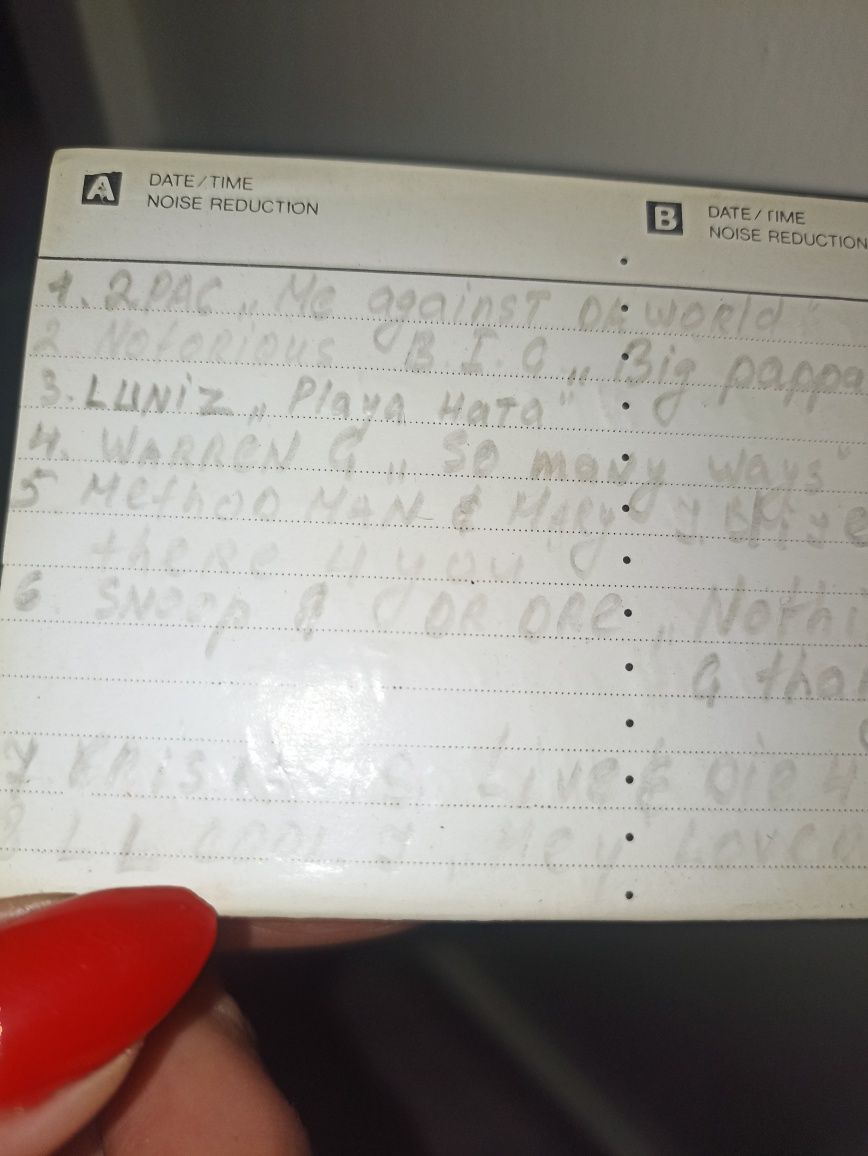 A DATE/TIME
NOISE REDUCTION
B DATE/TIME
NOISE REDUCTION
1. 2PAC „Me against DA world"
2. Notorious B.I.G „Big pappa
3. LUNIZ „Playa Hata"
4. WARREN G „So many ways"
5 Method MAN & Mary J Blige
there 4 you
6 SNOOP & DR DRE „Nothi
G tha
7 Live & Die 4
8 LL COOL J Hey Lover